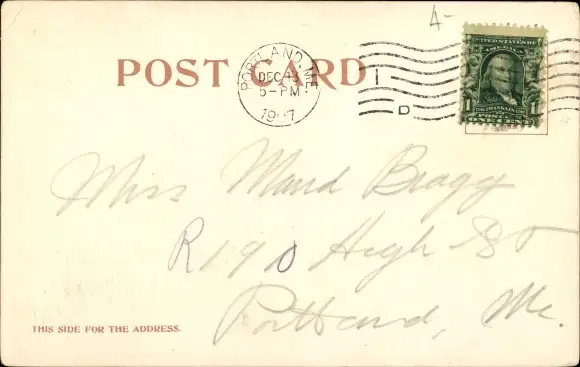 A-
POST CARD
PORTLAND, ME.
DEC 13
5-PM
1907
1
D
UNITED STATES OF
AMERICA
FRANKLIN
1 1
POSTAGE
ONE CENT
Miss Maud Bragg
R190 High St
Portland, Me.
THIS SIDE FOR THE ADDRESS.